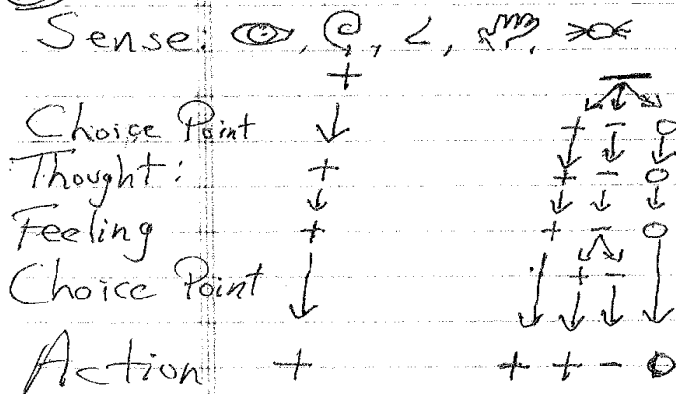 Sense:
+ −
Choice Point + − O
Thought: + + − O
Feeling + + − O
Choice Point + −
Action + + + − O